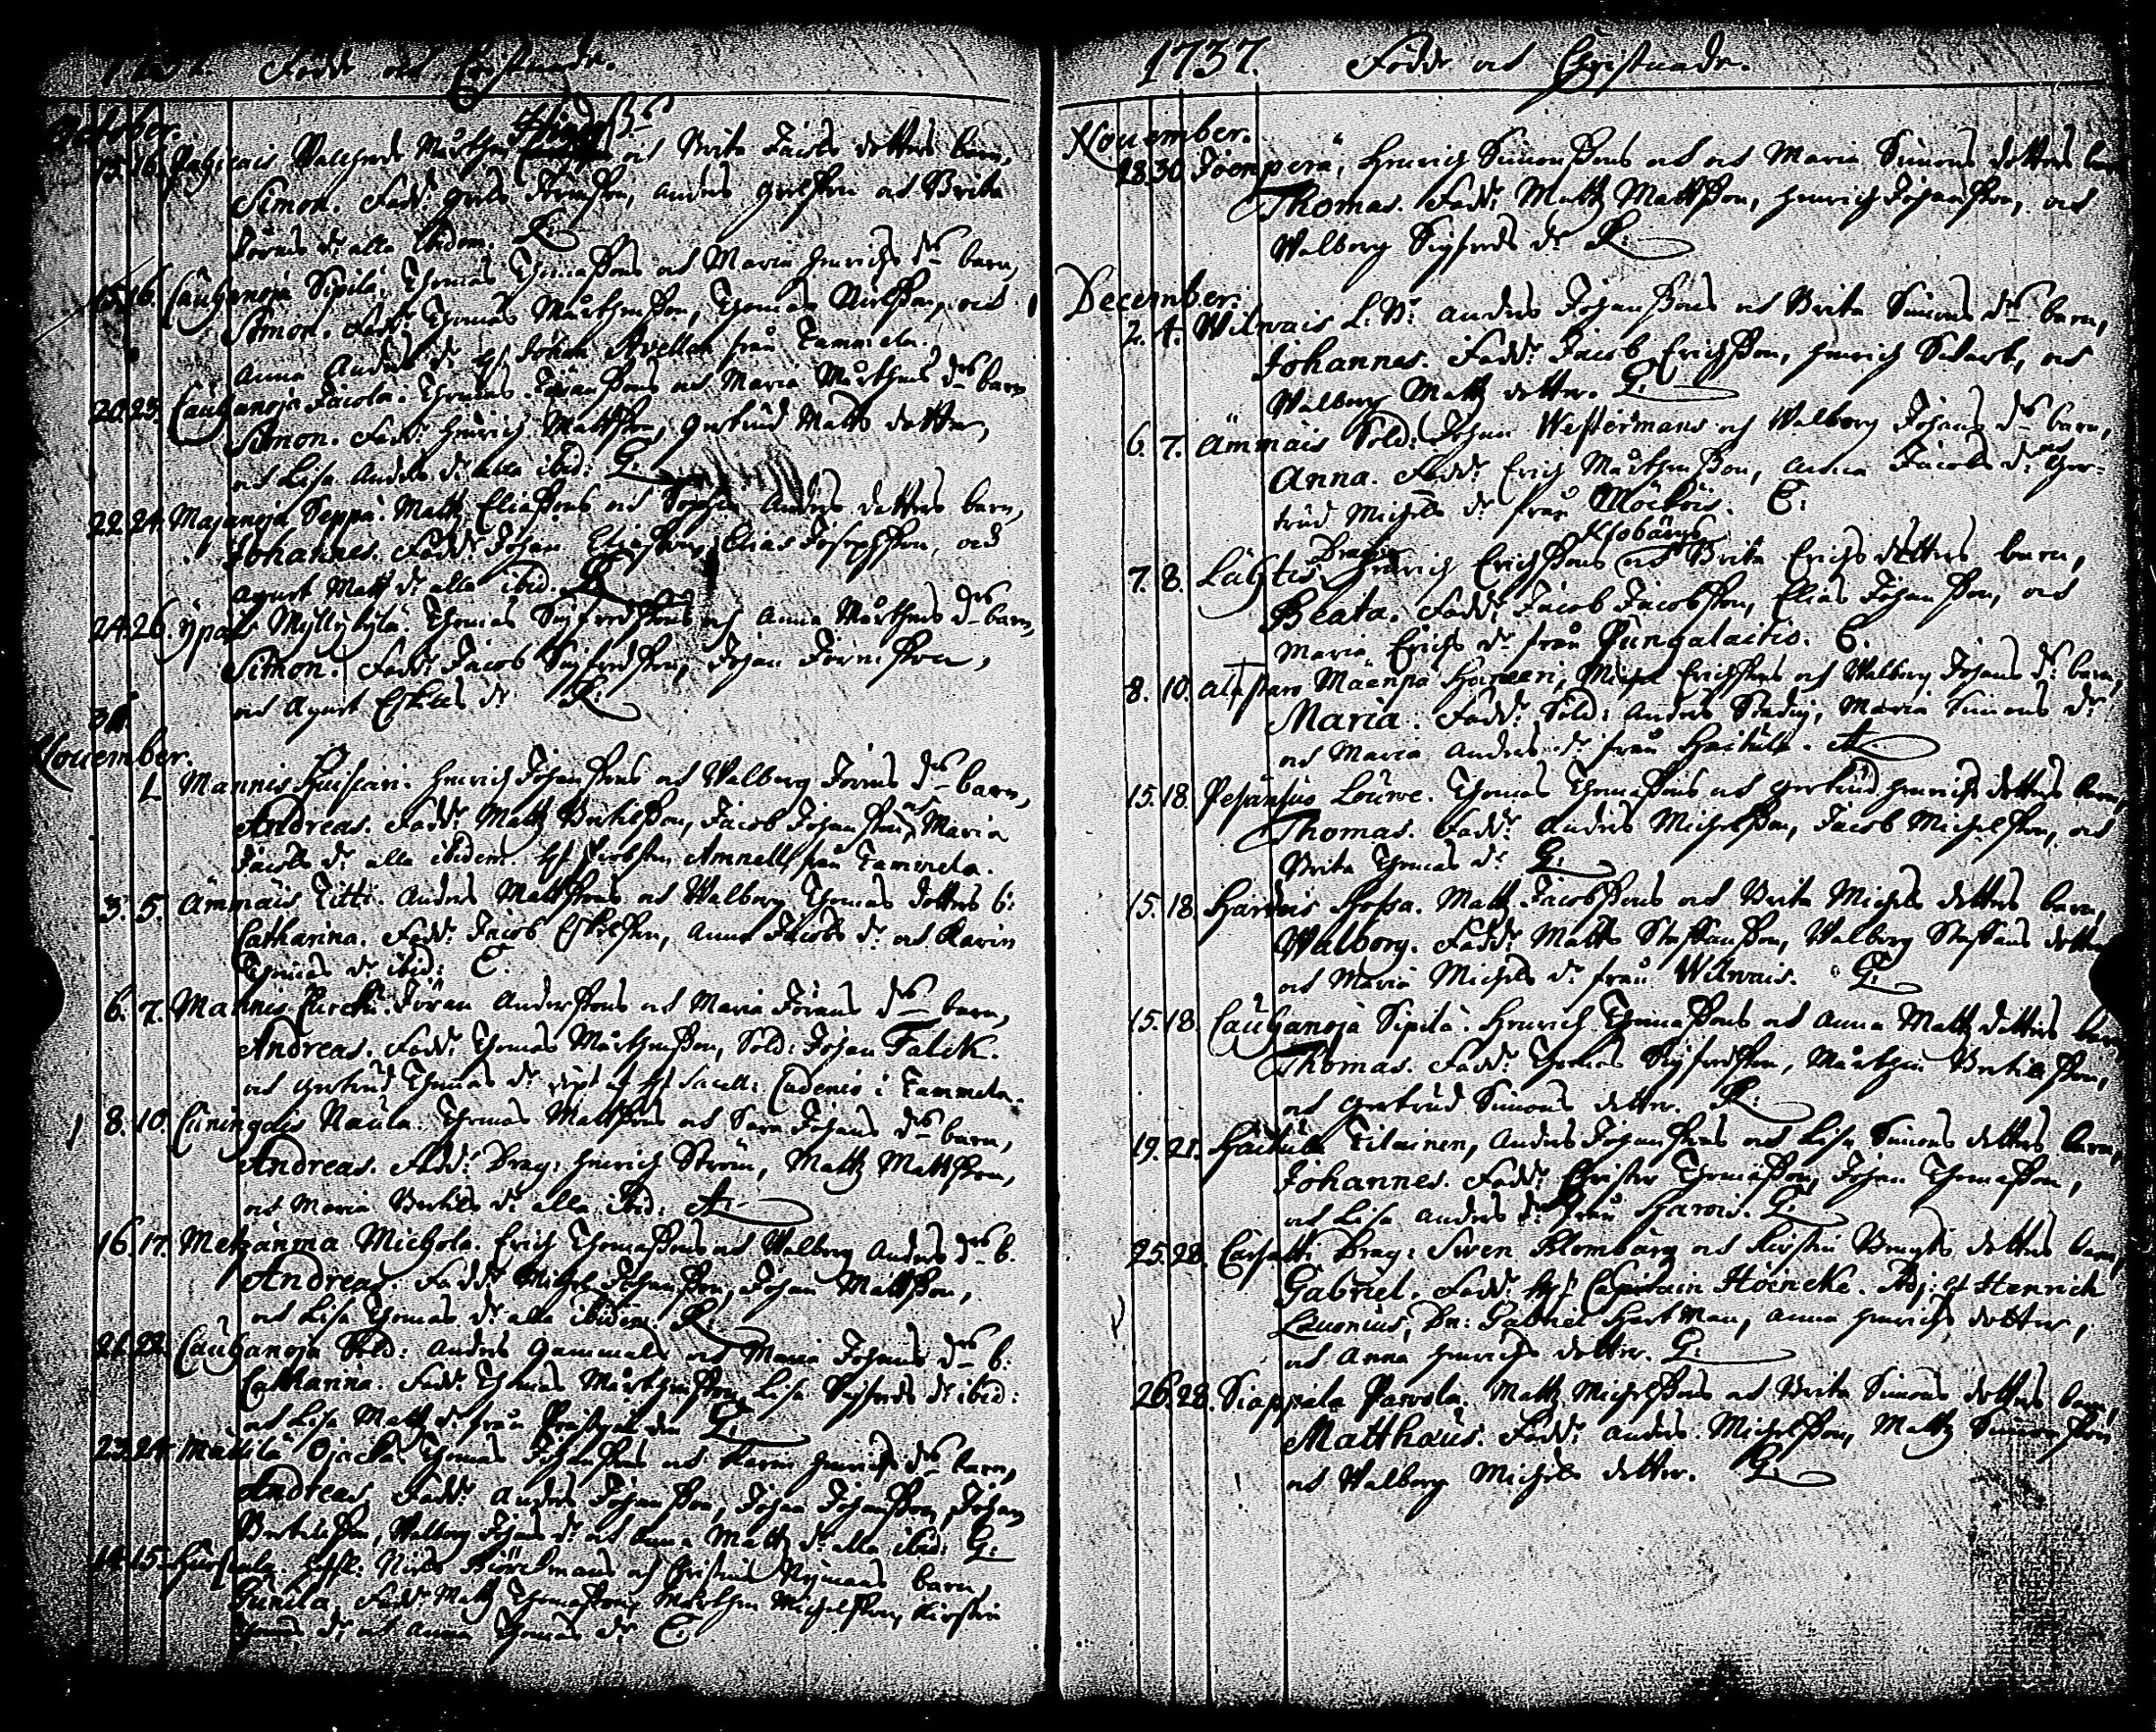 1737. Födde och Christnade.
October.
15. 16. Pahicais Valchende Mårthen och Brita Jacobs dotters barn,
Simon. Fadd: anders och Brita
Jörans d: alla ibidem. R:
15. 16. Cauhanoja Sipilä, Thomas Thomassons och Maria Henrichs ds barn,
Simon. Fadd: Thomas Mårthensson, Thomas och
Anna Anders d: Johan Avellan från Tammela.
20. 23. Cauhanoja Jacola. Thomas Jöranssons och Maria Mårthens ds barn
Simon. Fadd: Henrich Mattsson, Gertrud Matts dotter,
och Lisa Anders d: alla ibid: G:
22. 24. Majanoja Seppä. Mattz Eliassons och Sophia Anders dotters barn,
Johannes. Fadd: Johan Eliasson, Elias Josephsson, och
Agnet Matts d: alla ibid. R.
24. 26. Ypäis Myllykylä. Thomas Sigfredssons och Anna Mårthens ds barn,
Simon. Fadd: Jacob Sigfredsson, Johan Jöransson,
och Agnet Eskils d: R:
Nouember.
1. Mannis Huiscari. Henrich Johanssons och Walborg Jörans ds barn,
Andreas. Fadd: Mattz Bertilsson, Jacob Johansson, och Maria
Jacobs d: alla ibidem. Amnell från Tammela.
3. 5. Ämmäis Titti. Anders Mattssons och Walborg Thomas dotters b:
Catharina. Fadd: Jacob Eskilsson, Anna Jacobs d: och Karin
Thomas d: ibid: C.
6. 7. Mannis Jöran Anderssons och Maria Jörans ds barn,
Andreas. Fadd: Thomas Mårthensson, Sold: Johan Falck.
och Gertrud Thomas d: döpt af H: Sacell: Cadenio i Tammela.
8. 10. Cuningais Naula. Thomas Mattssons och Sara Johans ds barn,
Andreas. Fadd: Drag: Henrich Ström, Mattz Mattsson,
och Maria Bertils d: alla ibid: A:
16. 17. Metzänma Michola. Erich Thomassons och Walborg Anders ds b.
Andreas. Fadd: Michel Johansson, Johan Mattsson,
och Lisa Thomas d: alla ibidem. R:
21. 22. Cauhanoja Sold: Anders Gammals och Maria Johans ds b:
Catharina. Fadd: Thomas Mårthensson, Lisa Sigfreds d: ibid:
och Lisa Mattz d: från G:
23. 24. Ojacka. Thomas Johanssons och Karin Henrichs ds barn,
Andreas, Fadd: Anders Johansson, Johan Johansson, Johan
Bertilsson, Walborg Johans d: och Anna Mattz d: alla ibid: G:
14. 15. Nils Björckmans och Christina Nymans barn,
Gunila, Fadd: Mattz Thomasson, Mårthen Michelsson, Kirstin
Thomas d: och Anna Thomas d: C:
1737. Födde och Christnade.
Nouember.
28. 30. Joenperä, Henrich Simonssons och Maria Simons dotters barn
Thomas. Fadd: Mattz Mattsson, Henrich Johansson, och
Walborg Sigfreds d: R:
December.
2. 4. Wilwais L: B: Anders Johanssons och Brita Simons ds barn,
Johannes. Fadd: Jacob Erichsson, Henrich och
Walborg Mattz dotter. G:
6. 7. Ämmäis Sold: Johan Westermans och Walborg Johans ds barn,
Anna. Fadd: Erich Mårthensson, Anna Jacobs d: och Ger-
trud Michels d: från Möckois. C:
7. 8. Lahtis, Drag: Henrich Erichssons Siöbärgs och Brita Erichs dotters barn,
Beata. Fadd: Jacob Jacobsson, Elias Johansson, och
Maria Erichs d: från Pungalaitio. C.
8. 10. Alastaro Mäenpä Michel Erichssons och Walborg Johans ds barn,
Maria. Fadd: Sold: Anders Maria Simons d:
och Maria Anders d: från Haitula. A:
15. 18. Pesänsuo Louwe. Thomas Thomassons och Gertrud Henrichs dotters barn,
Thomas. Fadd: Anders Michelsson, Jacob Michelsson, och
Brita Thomas d: G:
15. 18. Harois Hossa. Mattz Jacobssons och Brita Michels dotters barn,
Walborg. Fadd: Matts Staffansson, Walborg Staffans dotter
och Maria Michels d: från Wilwais. G:
15. 18. Cauhanoja Sipilä. Henrich Thomassons och Anna Mattz dotters barn
Thomas. Fadd: Thomas Sigfredsson, Mårthen Bertilsson,
och Gertrud Simons dotter. R:
19. 21. Haitula Tilainen, Anders Johanssons och Lisa Simons dotters barn,
Johannes. Fadd: Christer Thomasson, Johan Thomasson,
och Lisa Anders d: från Harois. G:
25. 28. Carhatti Drag: Swen Blombärg och Kirstin Bengts dotters barn,
Gabriel. Fadd: H: Capitain Höencke. Adj: H: Henrich
Lauonius, Dn: Gabriel Hartman, Anna Henrichs dotter,
och Anna Henrichs dotter. G:
26. 28. Siappala Parvola. Mattz Michelssons och Brita Simons dotters barn,
Matthäus. Fadd: Anders Michelsson, Mattz Simonsson
och Walborg Michels dotter. G: